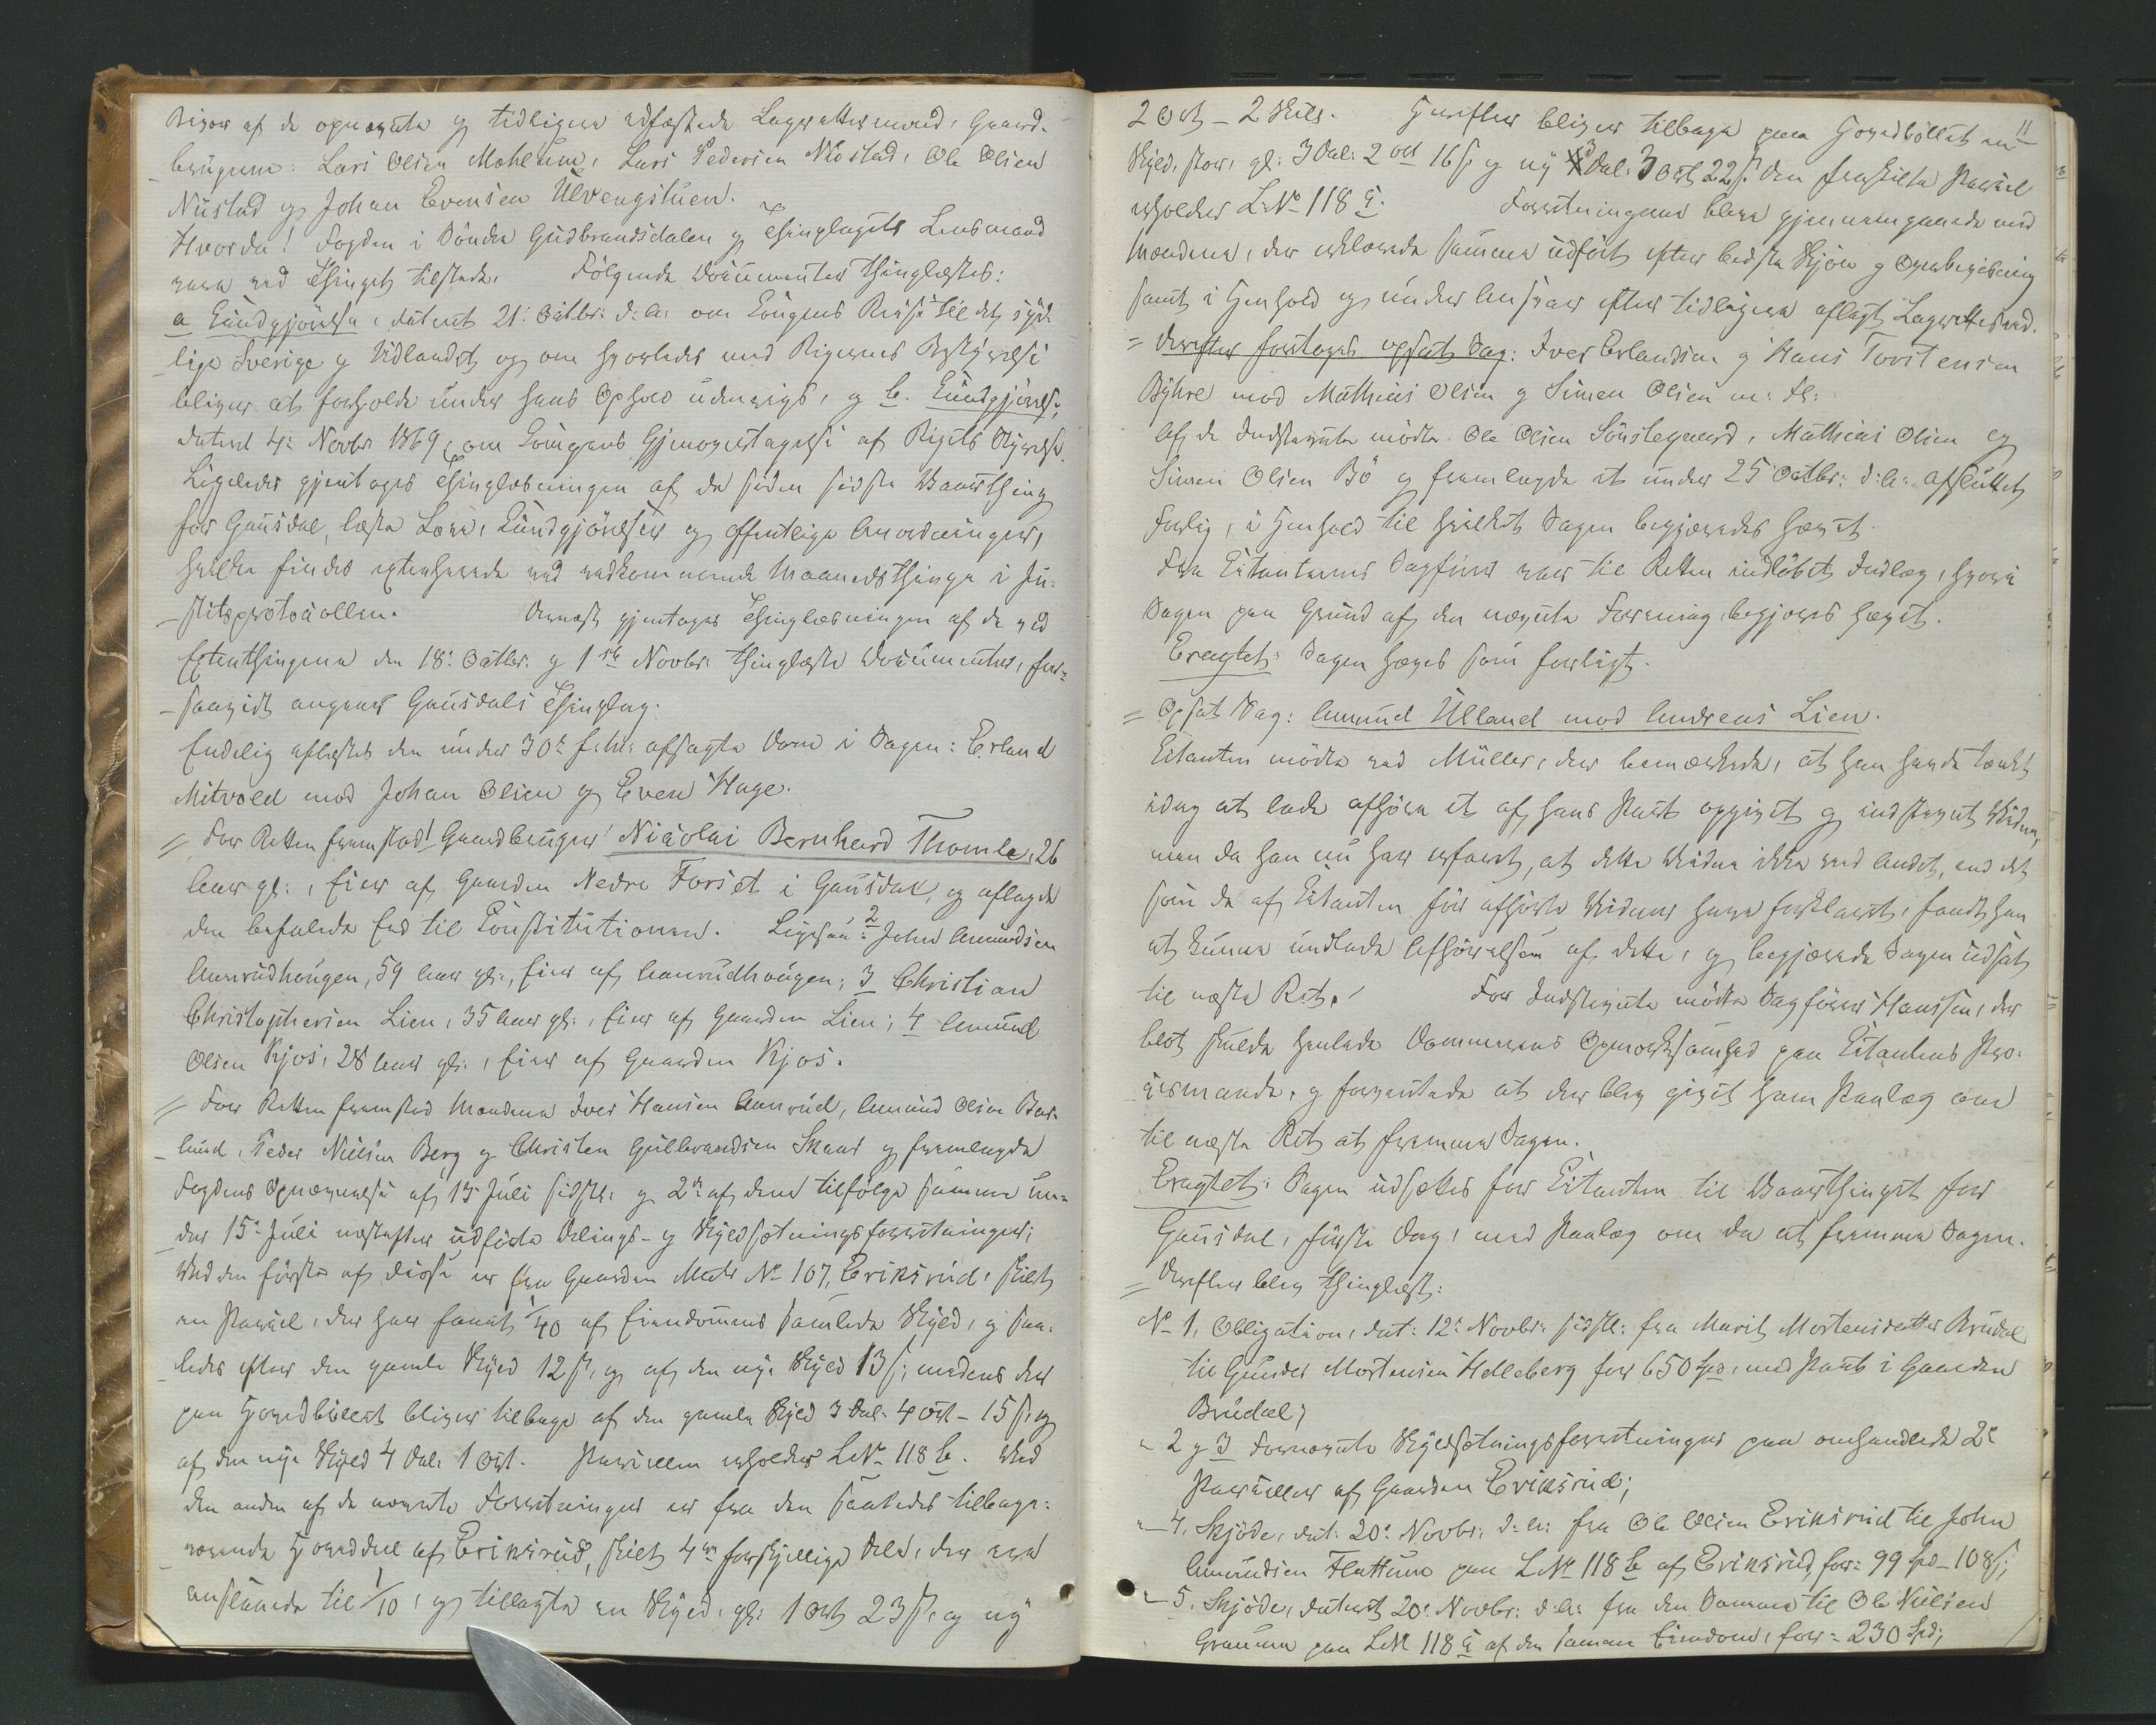 Bivær af de opnævnte og tidligere edfæstede Lagrettesmænd, Gaard-
brugerne: Lars Olsen Mohlum, Lars Pedersen Nustad, Ole Olsen
Nustad og Johan Evensen Ulvengstuen.
Hvorda! Fogden i Søndre Gudbrandsdalen og Thinglagets Lensmand
vare ved Thinget tilstede. Følgende Documenter thinglæstes:
a Kundgjørelse, dateret 21. Octbr. d.A. om Kongens Reise til det syd-
lige Sverige og Udlandet og om hvorledes med Rigernes Bestyrelse
bliver at forholde under hans Ophold udenrigs, og b. Kundgjørelse,
dateret 4. Novbr 1869, om Kongens Gjenovertagelse af Rigets Styrelse.
Ligeledes gjentoges Thinglæsningen af de siden sidste Vaarthing
for Gausdal, læste Love, Kundgjørelser og offentlige Anordninger,
hvilke findes extraherede ved vedkommende Maanedsthinge i Ju-
stitsprotocollen. Dernæst gjentoges Thinglæsningen af de ved
Extrathingene den 18. Octbr. og 1ste Novbr. thinglæste Documenter, for-
saavidt angaaer Gausdals Thinglag.
Endelig aflæstes den under 30te f.M. afsagte Dom i Sagen: Erland
Mitvold mod Johan Olsen og Even Hage.
= For Retten fremstod 1 Gaardbruger Nicolai Bernhard Thomle, 26
Aar gl., Eier af Gaarden Nedre Forset i Gausdal, og aflagde
den befalede Ed til Constitutionen. Ligesaa: 2 John Amundsen
Aanrudhougen, 59 Aar gl., Eier af Aanrudhougen; 3 Christian
Christophersen Lien, 35 Aar gl., Eier af Gaarden Lien; 4 Amund
Olsen Kjos, 28 Aar gl., Eier af Gaarden Kjos.
= For Retten fremstod Mændene Iver Hansen Aanrud, Amund Olsen Bær-
lund, Peder Nielsen Berg og Christen Gulbrandsen Skaar og fremlagde
Fogdens Opnævnelse af 13 Juli sidstl. og 2de af dem tilfølge samme un-
der 15. Juli næstefter udførte Delings- og Skyldsætningsforretninger;
Ved den første af disse er fra Gaarden Matr No 107, Eriksrud, skilt
en Parcel, der har faaet 1/40 af Eiendommens samlede Skyld, og saa-
ledes efter den gamle Skyld 12 ß, og af den nye Skyld 13 ß; medens der
paa Hovedbøllet bliver tilbage af den gamle Skyld 3 Dal. 4 Ort - 15 ß, og
af den nye Skyld 4 Dal. 1 Ort. Parcellen erholder LNo 118 b. Ved
den anden af de nævnte Forretninger er fra den saaledes tilbage-
værende Hoveddeel af Eriksrud, skilt 4re forskjellige Dele, der ere
anslaaede til 1/10, og tillagte en Skyld, gl. 1 Ort 23 ß, og ny
11
2 Ort - 2 Skill. Herefter bliver tilbage paa Hovedbøllet en
Skyld, stor, gl. 3 Dal. 2 Ort 16 ß og ny 3 Dal. 3 Ort 22 ß. Den fraskilte Parcel
erholder LNo 118 c. Forretningerne bleve gjennemgaaede med
Mændene, der erklærede samme udført efter bedste Skjøn og Overbeviisning
samt i Henhold og under Ansvar efter tidligere aflagt Lagretteseed.
= Derefter foretoges opsat Sag: Iver Erlandsen og Hans Torstensen
Byhre mod Mathias Olsen og Simen Olsen m. Fl.
Af de Indstevnte mødte Ole Olsen Sønstegaard, Mathias Olsen og
Simen Olsen Bø og fremlagde et under 25 Octbr. d.A. afsluttet
Forlig, i Henhold til hvilket Sagen begjæredes hævet.
Fra Citanternes Sagfører var til Retten indløbet Indlæg, hvori
Sagen paa Grund af den nævnte Forening begjæres hævet.
Eragtet: Sagen hæves som forligt.
= Opsat Sag: Amund Ulland mod Andreas Lien.
Citanten mødte ved Müller, der bemærkede, at han havde tænkt
idag at lade afhøre et af hans Part opgivet og indstevnt Vidne,
men da han nu har erfaret, at dette Vidne ikke ved Andet, end det
som de af Citanten før afhørte Vidner have forklaret, fandt han
at kunne undlade Afhørelsen af dette, og begjærede Sagen udsat
til næste Ret. For Indstevnte mødte Sagfører Hanssen, der
blot skulde henlede Dommerens Opmærksomhed paa Citantens Pro-
cesmaade, og forventede at der blev givet ham Paalæg om
til næste Ret at fremme Sagen.
Eragtet: Sagen udsættes for Citanten til Vaarthinget for
Gausdal, første Dag, med Paalæg om da at fremme Sagen.
= Derefter blev thinglæst:
No 1, Obligation, dat. 12. Novbr. sidstl. fra Marit Mortensdatter Brudal
til Gunder Mortensen Helleberg for 650 Spd, med Pant i Gaarden
Brudal;
" 2 og 3 Fornævnte Skyldsætningsforretninger paa omhandlede 2de
Parceller af Gaarden Eriksrud;
" 4, Skjøde, dat. 20. Novbr. d.A. fra Ole Olsen Eriksrud til John
Amundsen Flattum paa LNo 118 b af Eriksrud, for 99 Spd - 108 ß;
" 5. Skjøde, dateret 20. Novbr. d.A. fra den Samme til Ole Nielsen
Graunn paa LNo 118 c af den samme Eiendom, for 230 Spd;